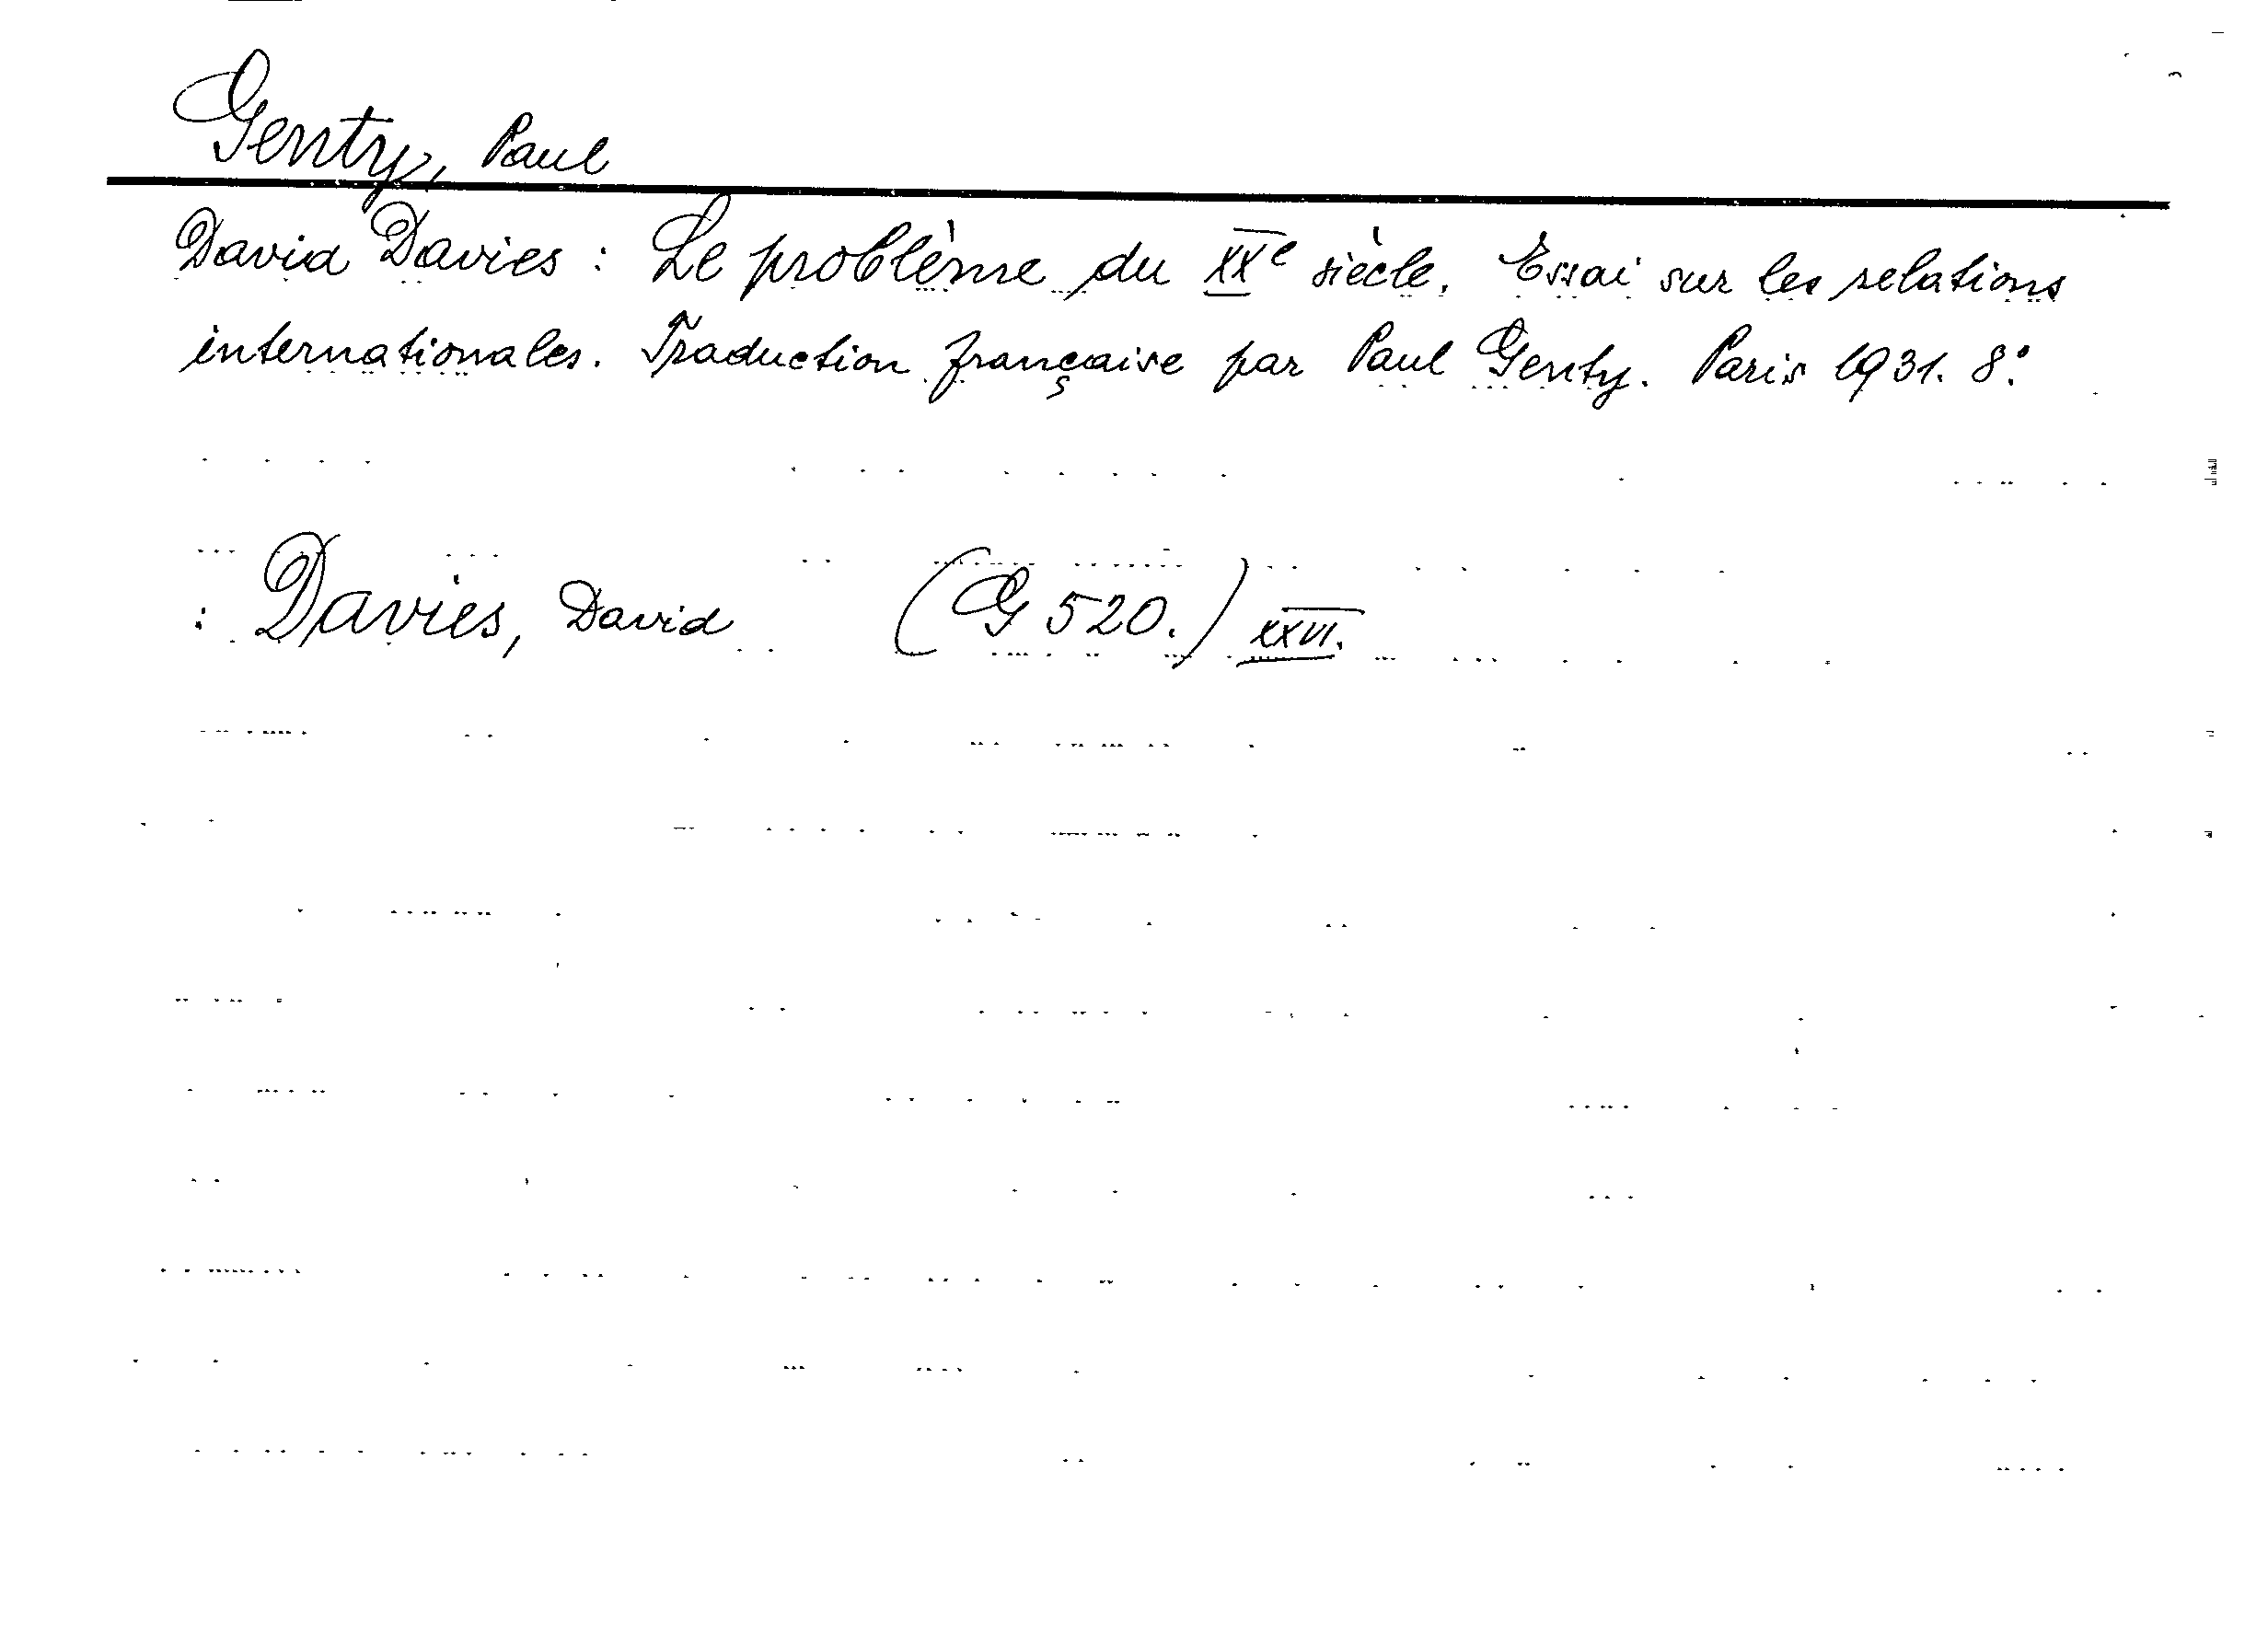 Genty, Paul
David Davies : Le problème du XXe siècle. Essai sur les relations
internationales. Traduction française par Paul Genty. Paris 1931. 8°.
: Davies, David (G 520.) XXVI.